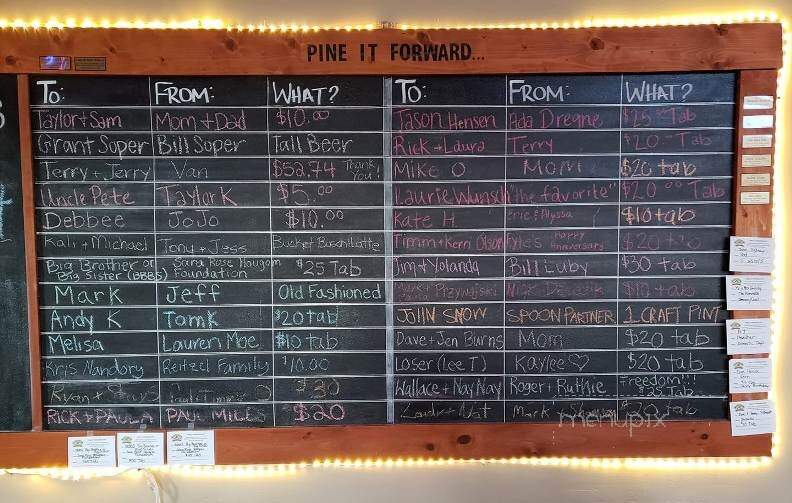 PINE IT FORWARD...
TO: FROM: WHAT?
Taylor + Sam Mom + Dad $10.00
Grant Soper Bill Soper Tall Beer
Terry + Jerry Van $52.74 Thank You!
Uncle Pete Taylor K $5.00
Debbee JoJo $10.00
Kali + Michael Tony + Jess Bucket
Big Brother or Big Sister (BBBS) Sara Rose Hougom Foundation $25 Tab
Mark Jeff Old Fashioned
Andy K Tom K $20 tab
Melisa Lauren Moe $10 tab
Kris Nandory Reitzel Family $10.00
Ryan + $30
RICK + PAULA PAUL MILES $20
TO: FROM: WHAT?
Jason Hensen Ada Dregne $25 Tab
Rick + Laura Terry $20 - Tab
Mike O Mom $20 tab
Laurie Wunsch "the favorite" $20.00 Tab
Kate H Eric & Alyssa $10 tab
Timm + Kerri Olson Fyles Happy Anniversary $20 tab
Jim + Yolanda Bill Luby $30 tab
$10 tab
JOHN SNOW SPOON PARTNER 1 CRAFT PINT
Dave + Jen Burns Mom $20 tab
Loser (Lee T) Kaylee ♡ $20 tab
Wallace + NayNay Roger + Ruthie Freedom!!! $25 Tab
Mark tab
menupix